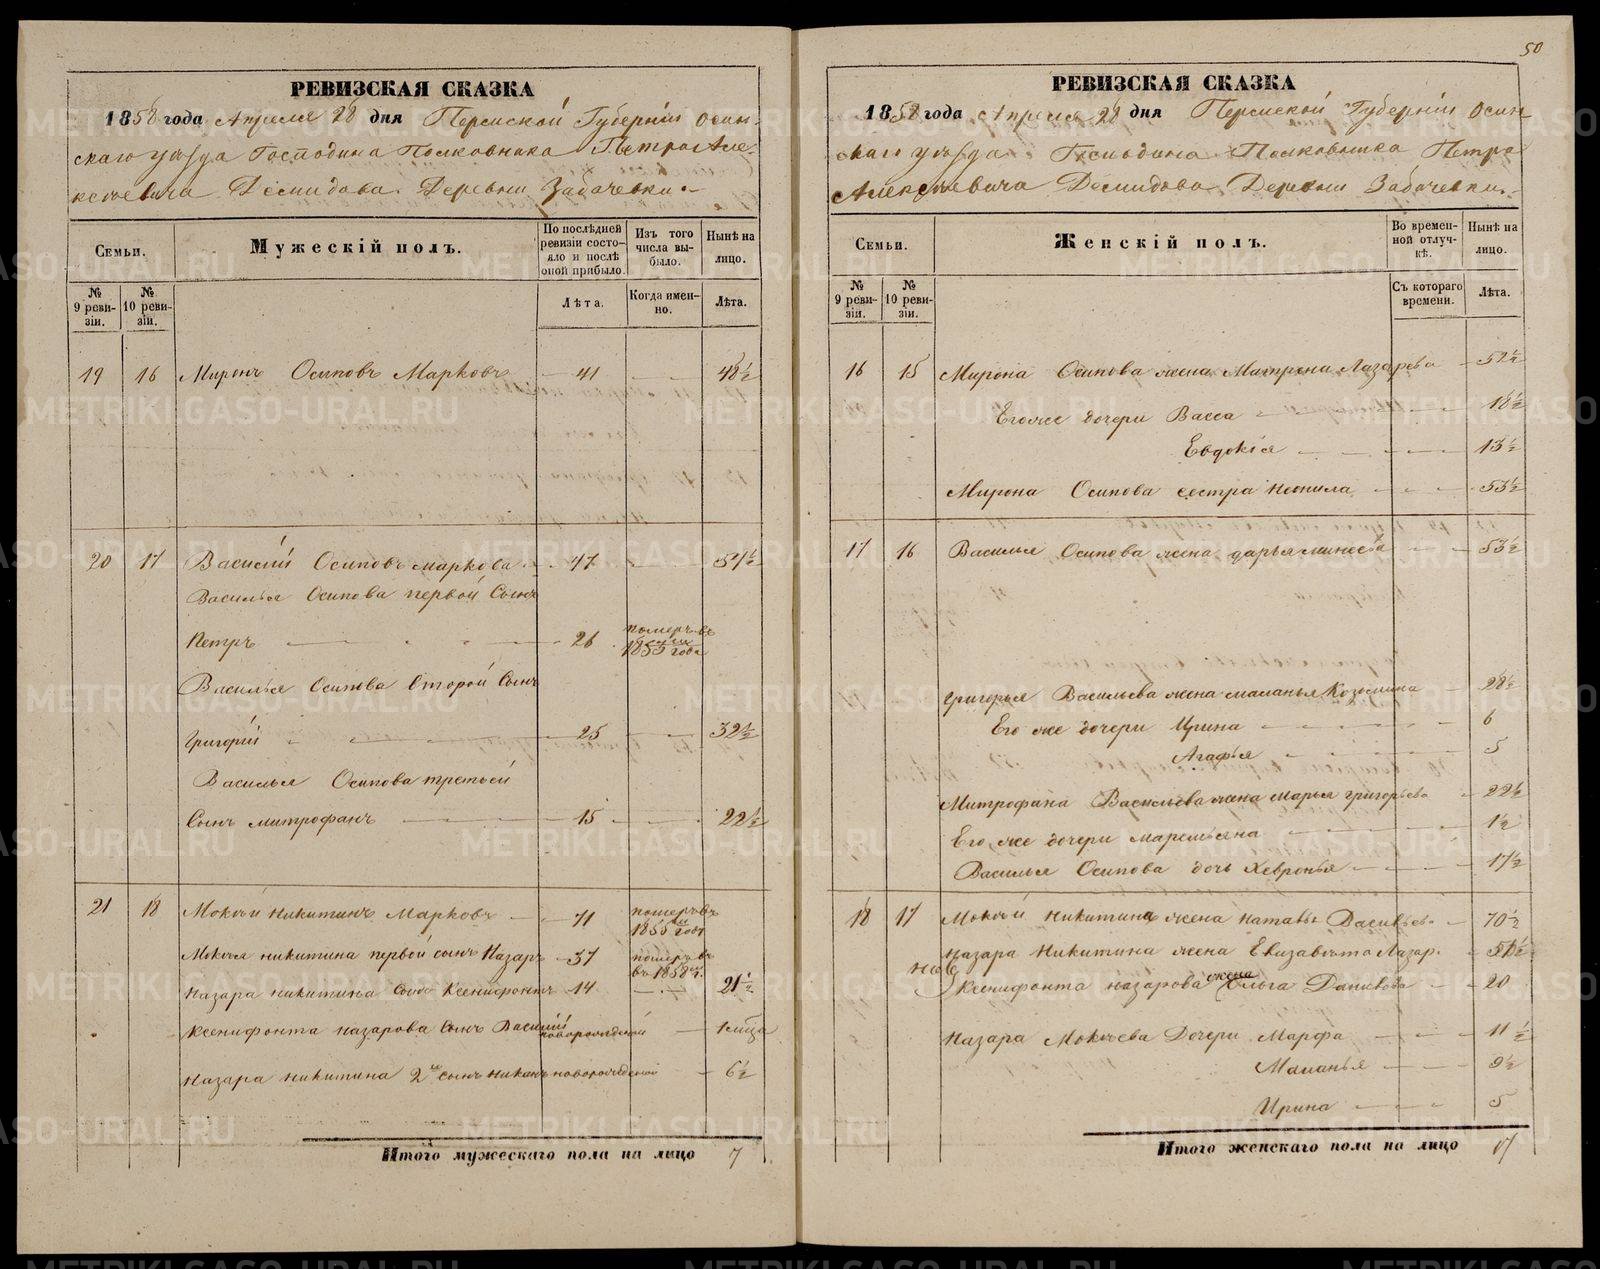 50
РЕВИЗСКАЯ СКАЗКА
1858 года Апреля 28 дня Пермской Губернии Осин-
скаго уезда Господина Полковника Петра Але-
ксеевича Демидова Деревни Забачевки
Семьи.
Мужескій полъ.
По последней ревизіи состо-
яло и послѣ оной прибыло.
Изъ того числа вы-
было.
Нынѣ на лицо.
№ 9 реви-
зіи.
№ 10 реви-
зіи.
Лѣта.
Когда имен-
но.
Лѣта.
19 16 Миронъ Осиповъ Марковъ 41 48½
20 17 Василій Осиповъ Маркова 47 54½
Василья Осипова первой Сынъ
Петръ 26 померъ въ 1855 года
Василья Осипова Второй Сынъ
Григорій 25 32½
Василья Осипова третьей
Сынъ Митрофанъ 15 22½
21 18 Мокѣй Никитинъ Марковъ 71 померъ въ 1855 году
Мокея Никитина первой сынъ Назаръ 37 померъ въ 1858 г.
Назара Никитина Сынъ Ксенифонтъ 14 21½
Ксенифонта Назарова Сынъ Василій новорожденной
Назара Никитина 2й сынъ новорожденной 6½
Итого мужескаго пола на лицо 7
РЕВИЗСКАЯ СКАЗКА
1858 года Апреля 28 дня Пермской Губерніи Осин
скаго уезда Господина Полковника Петра
Алексѣевича Демидова Деревни Забачевки
Семьи.
Женскій полъ.
Во времен-
ной отлуч-
кѣ.
Нынѣ на лицо.
№ 9 реви-
зіи.
№ 10 реви-
зіи.
Съ котораго времени.
Лѣта.
16 15 Мирона Осипова жена Матрена Лазарева 52½
Его же дочери Васса 18½
Евдокія 13½
Мирона Осипова сестра Неонила 53½
17 16 Василья Осипова жена Дарья 53½
Григорья Васильева жена Маланья Козьмина 28½
Его же дочери Ирина 6
Агафья 5
Митрофана Васильева жена Марья Григорьева 22½
Его же дочери Маремьяна 1½
Василья Осипова дочь Хевронья 17½
18 17 Мокѣй Никитина жена Наталья Васильева 70½
Назара Никитина жена Елизавѣта Лазар. 51½
Ксенифонта Назарова жена Ольга Данилова 20
Назара Мокѣева Дочери Марфа 11½
Маланья 9½
Ирина 5
Итого женскаго пола на лицо 17
METRIKI.GASO-URAL.RU